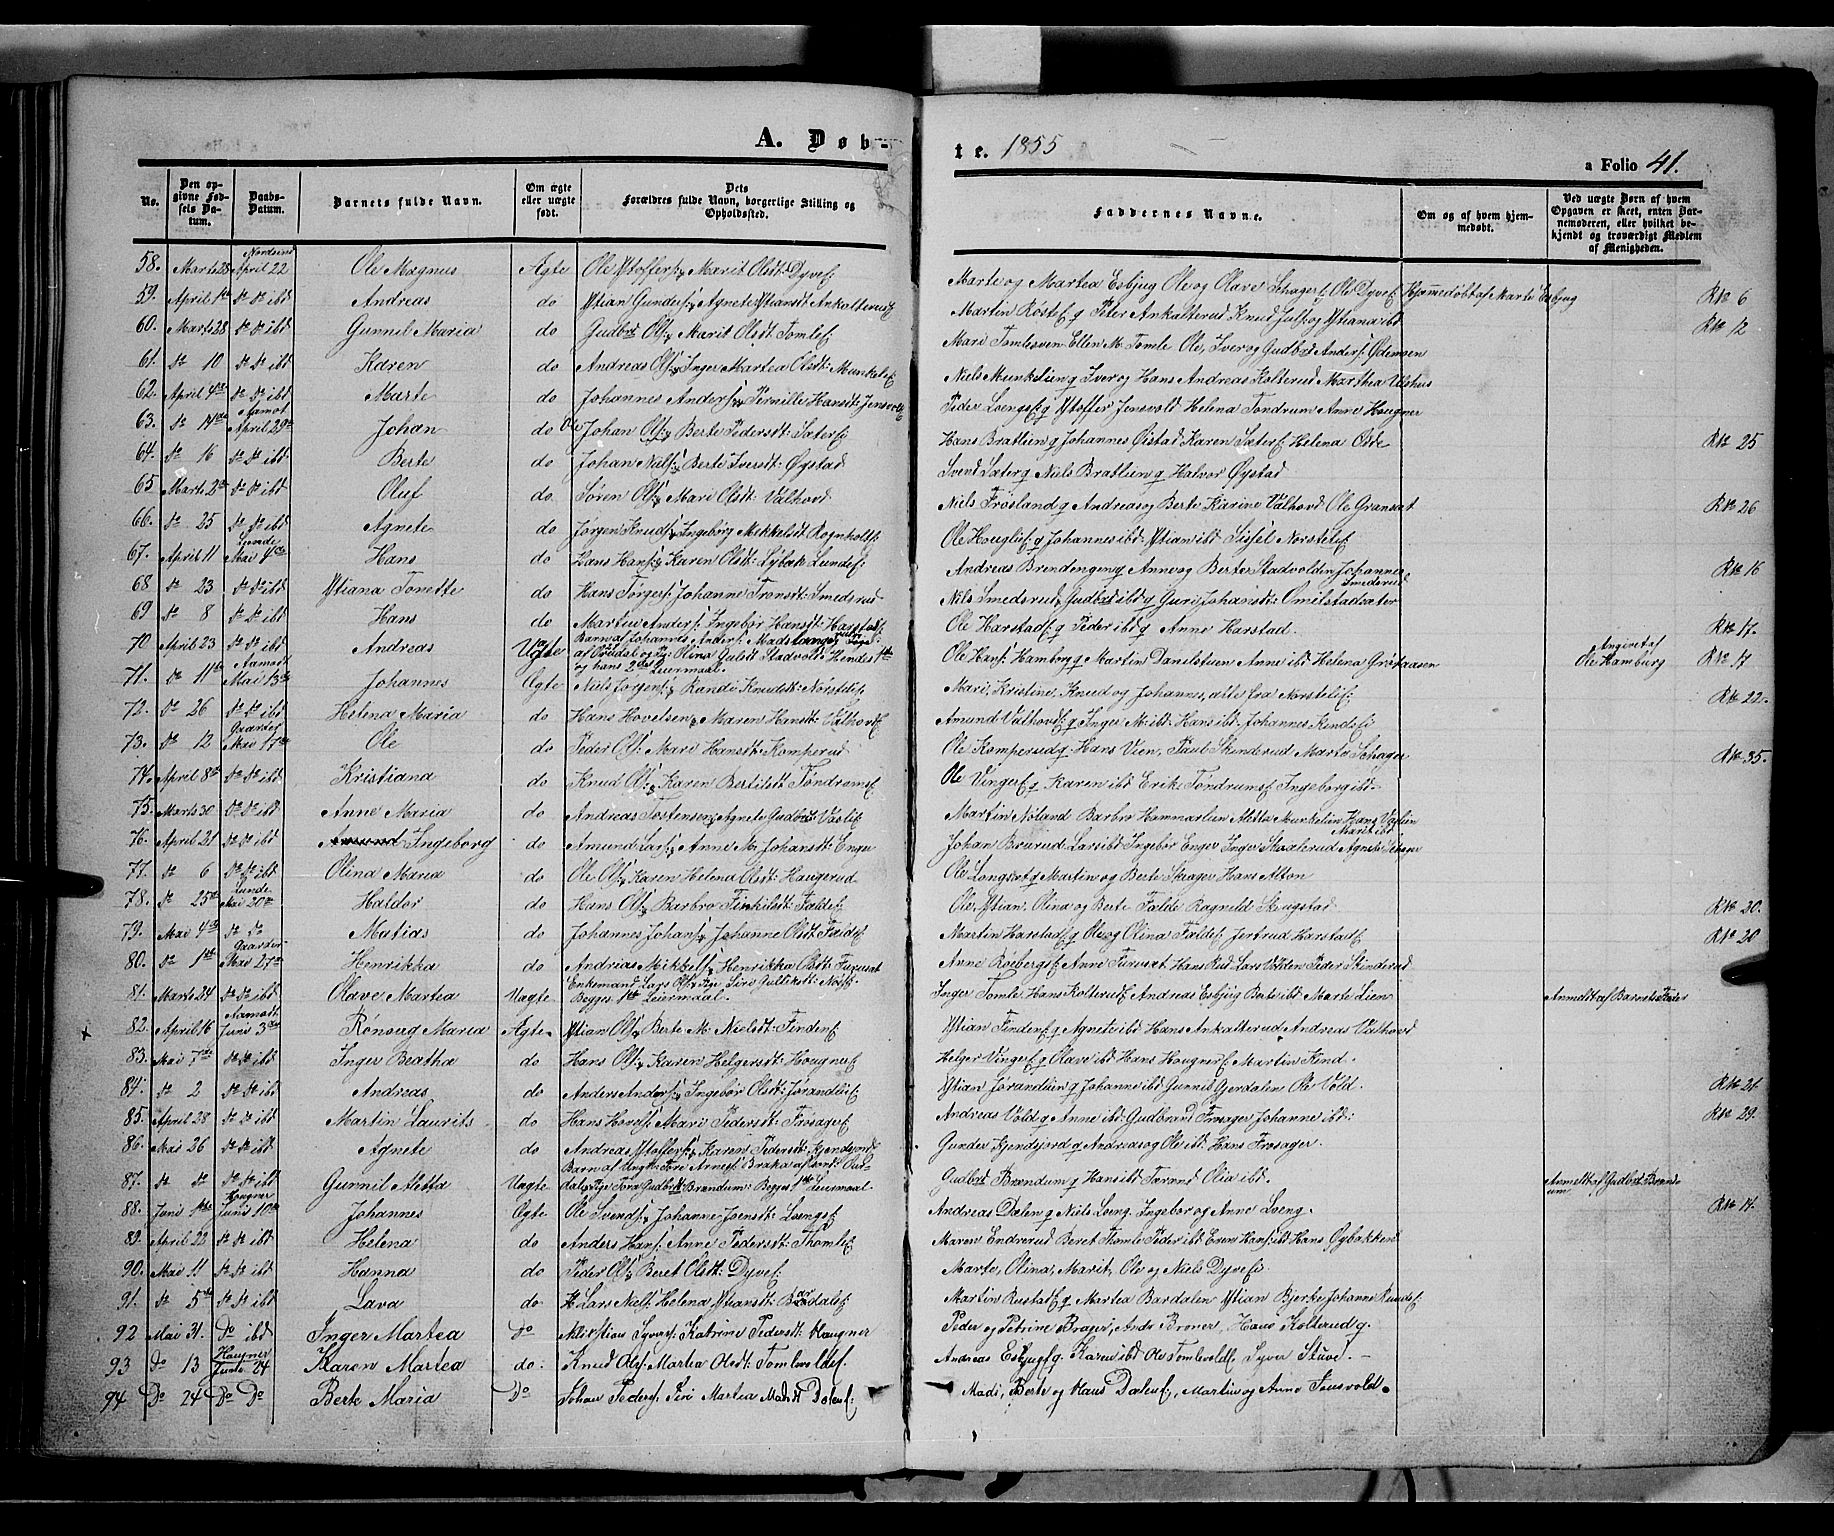 A. Døb-
te. 1855
a Folio 41.
No. | Den opgivne Fødsels Datum. | Daabs-Datum. | Barnets fulde Navn. | Om ægte eller uægte født. | Dets Forældres fulde Navn, borgerlige Stilling og Opholdssted. | Faddernes Navne. | Om og af hvem hjemmedøbt. | Ved uægte Børn af hvem Opgaven er skeet, enten Barnemoderen, eller hvilket bekjendt og troværdigt Medlem af Menigheden.
58. Marts 28 Nordsind April 22 Ole Magnus Ægte Ole Stoffers: Marit Olsdt: Dyvesf Marte og Martea Esbjug Ole og Olave Schager Ole Dyvef Hjemmedøbt af Marte Esbjug R No 6
59. April 1ste do do ibd Andreas do Stian Gunders: Agnete Stiansdt Ankalterud Martin Røste g Peter Ankalterud Knud Juls og Stiana ibd R No 12
60. Marts 28 do do ibd Gunnil Maria do Gudbrd Ols: Marit Olsdt: Tomlef Mari Tomlesven Ellen M. Tomle Ole, Iver og Gudbrd Anders: Ødemoen
61. do 10 do do ibd Karen do Andreas Ols: Inger Martea Olsdt: Munkelef Niels Munkelien g Iver og Hans Andreas Kolterud Martha Ulshus
62. April 4de do do ibd Marte do Johannes Anders: Pernille Hansdt: Jensvold Peder Loengsf g Stoffer Jensvold Helena Tondrum Anne Hougner
63. do 14de Aamot April 29de Johan do Johan Ols: Berte Pedersdt: Sætersf Hans Bratlien g Johannes Øistad Karen Sætersf Helena Odde R No 25
64. do 16 do do ibd Berte do Johan Niels: Berte Iversdt: Øystad Svend Sæter g Niels Bratlien g Halvor Øystad
65 Marts 2de do do ibd Oluf do. Søren Ols: Mari Olsdt: Valhovd Niels Frøsland g Andreas og Berte Karine Valhovd Ole Gransat R No 26
66. do 25 do do ibd Agnete do Jørgen Knuds: Ingeborg Mekkelsdt Rognholtsf Ole Houglief g Johannes ibd Stian ibd Sissel Norstelief
67. April 11 Lunde Mai 4de Hans do Hans Hans: Karen Olsdt: Lybæk Lundef: Andreas Brendengen g Anne og Berte Stadvolden Johannes Smederud R No 16
68 do 23 do do ibd Stiana Tonette do Hans Tørges: Johanne Tronsdt: Smedsrud Niels Smedsrud, Gudbrd ibd g Guri Johansdt: Omilstadsæter
69 do 8 do do ibd Hans do Martin Anders: Ingebør Hansdt: Harstadf Ole Harstadf g Peder ibd g Anne Harstad. R No 17.
70. April 23 do do ibd Andreas Uægte Barn af Johannes Anders: Madslangrud af Ourdal og Pige Olina Gulsdt Stadvold: Hendes 1ste og hans 2det Leiermaal. Ole Hans: Hamborg g Martin Danielstuen Anne ibd Helena Grøtaasen Angivet af Ole Hamburg R No 17
71. do 11te Aamoth Mai 13de Johannes Ægte Niels Jørgens: Randi Knudsdt: Nørstelief Mari, Kristine, Knud og Johannes, alle fra Norstelief: R No 22.
72. do 26 do do ibd Helena Maria do Hans Hovelsen Maren Hansdt: Valhovdf Amund Valhovdf g Inger M: ibd: Hans ibd: Johannes Kindef
73. do 12 Gaarder Mai 17de Ole do Peder Ols: Mari Hansdt: Komperud Ole Komperud g Hans Vien, Paul Skinderud Marta Schager R No 35.
74. April 8de do do ibd Kristiana do Knud Ols: Karen Bertilsdt: Tøndromsf Ole Vingerf g Karen ibd Erik Tøndrumsf Ingeborg ibd.
75. Marts 30 do do ibd Anne Maria do Andreas Tostensen Agnete Gudbrdsdt Vaslief Martin Nøland Barbro Hammarlien Aletta Munkelien Hans Vaslien Marit ibd
76. April 21 do do ibd Ingeborg do Amund Lars: Anne M. Johansdt: Enger Johan Brurud Lars ibd Ingebør Enger Inger Skaalerud Agnete Enger
77. do 6 do do ibd Olina Maria do Ole Ols: Karen Helena Olsdt: Haugerud Ole Longset g Martin og Berte Skager Hans Alton
78. do 25de Lunde Mai 20de Haldor do Hans Ols: Barbro Finkilsdt: Faldef Ole, Stian, Olina og Berte Falde Ragnild Skugstad R No 20.
79. Mai 4de do do Matias do Johannes Johans: Johanne Olsdt: Faldsf Martin Harstadf g Ole og Olina Faldef Jertrud Harstadf R No 20
80. do 1ste Gaarder Mai 27de Henrikka do Andrias Mikkels: Henrikka Olsdt: Furusat Anne Roebergsf Anne Furusat Hans Rud Lars Volden Peder Skinderud
81. Marts 24 do do ibd Olave Martea Uægte Enkemand Lars Ols: Pige Siri Gulliksdt: Begges 1ste Leiermaal. Inger Tomle Hans Kolterud Andreas Esbjug Berte ibd Marte Lien Anmeldt af Barnets Fader
x 82. April 16 Aamoth Juni 3die Rønoug Maria Ægte Stian Ols: Berte M. Nielsdt: Findenf Stian Findenf g Agnete ibd Hans Ankalterud Andreas Valhovd
83. Mai 7de do do ibd Inger Beatha do Hans Ols: Karen Helgersdt: Hougnerf Helger Vingerf g Olave ibd Hans Hougnerf Martin Kind.
84. do 2 do do ibd Andreas do Anders Anders: Ingebør Olsdt: Jørandlief Stian Jørandlien g Johanne ibd Gunnil Gjerdalen Ole Vold. R No 21.
85. April 28 do do ibd Martin Laurits do Hans Hovdf: Mari Pedersdt: Frøsagerf Andreas Vold g Anne ibd Gudbrand Frøsager Johanne ibd: R No 29.
86. Mai 26 do do ibd Agnete do Andreas Stoffers: Karen Pedersdt: Kjendsjord Gunder Kjendsjord g Andreas og Ole ibd: Hans Frøsager.
87. do do do do ibd Gunnil Mette Uægte Barn af Ungk: Tore Arnes: Braka af sønd: Ourdal og Pige Tora Gudbrdsdt Brandum: Begges 1ste Leiermaal. Gudbrd Brandum g Hans ibd Tarand Olia ibd. Anmeldt af Gudbrd Brandum
88. Juni 1ste Hougner Juni 10de Johannes Ægte Ole Svends: Johanne Joensdt: Loengsf Andreas Dalen g Niels Loeng. Ingebor og Anne Loeng. R No 14.
89. April 22 do do ibd Helena do Anders Hans: Anne Pedersdt: Thomlef Maren Endrerud Beret Tomle Peder ibd Even Hans: ibd Hans Øybakken
90. Mai 11 do do ibd Hanna do Peder Ols: Beret Olsdt: Dyvef: Marte, Olina, Marit, Ole og Niels Dyvef:
91. do 5te do do ibd Lava do Lars Niels: Helena Stiansdt: Bardalef Martin Rustadf g Martea Bardalen Stian Bjerke Johanne Rundef
92 Mai 31. Do ibd Inger Martea Do Kristian Syvers: Katrine Pedersdt: Haugner Peder og Petrine Brager, Andr Broner, Hans Kolterud g.
93 do 13 Haugner Junte 24 Karen Martea do. Knud Ols: Martea Olsdt: Tomlevoldef. Andreas Esbjugf g. Karen ibd Ole Tomlevolde, Syver Stuve.
94 Do 24 Do Do Berte Maria Do Johan Peders: Siri Martea Madsdt Dalenf: Madi, Berte og Hans Dalenf:, Martin og Anne Jensvold.